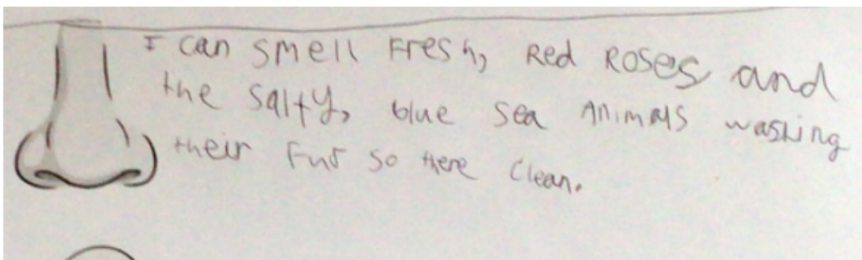 I can smell Fresh, Red Roses and
the salty, blue sea Animals washing
their Fur so there Clean.